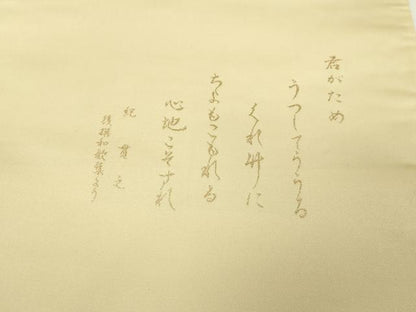 君がため
うつしてううる
くれ竹に
ちよもこもれる
心地こそすれ
紀 貫之
後撰和歌集より